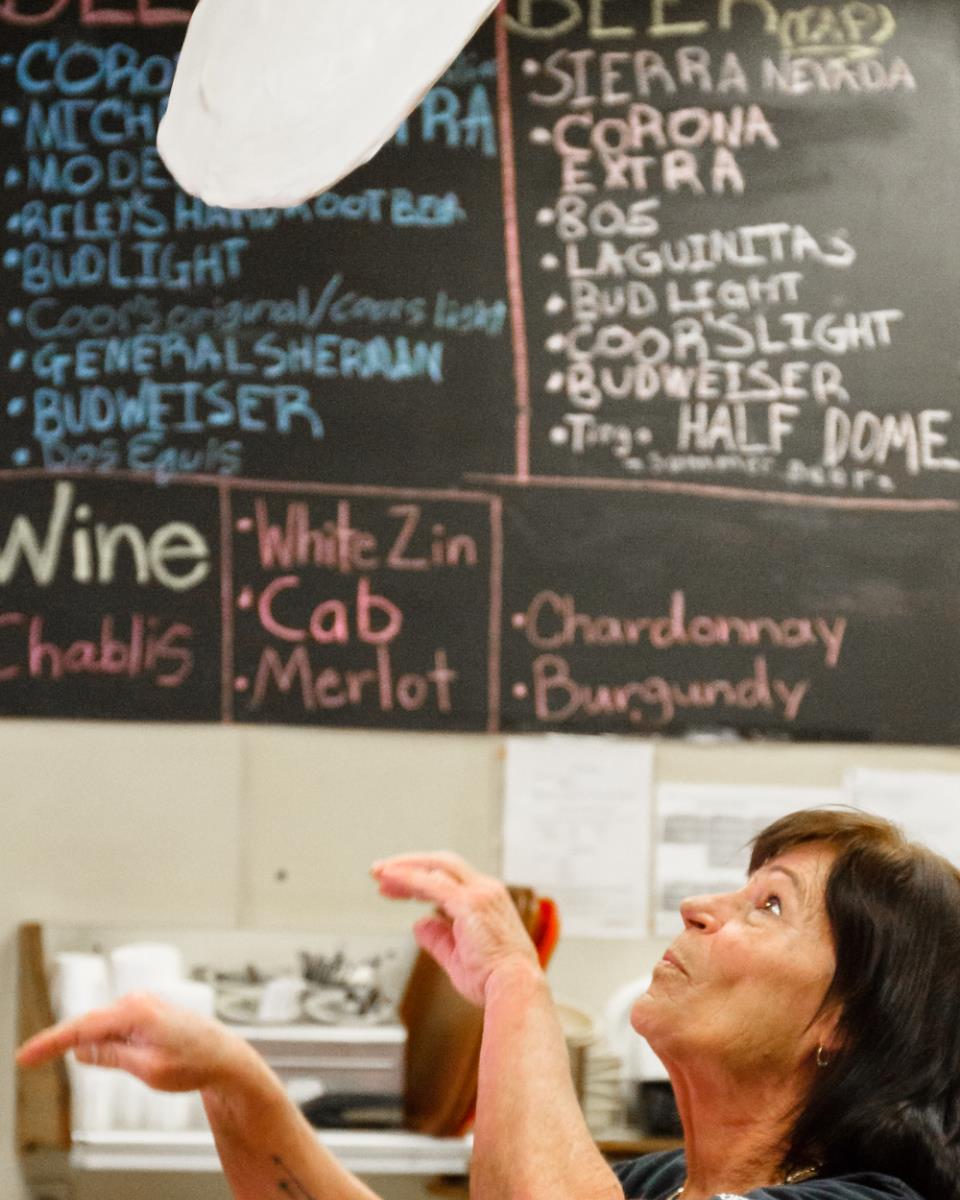 BEER
• CORO
• MICH TRA
• MODE
• RILEY'S HARD ROOT BEER
• BUDLIGHT
• Coor's original/coors light
• GENERAL SHERMAN
• BUDWEISER
• Dos Equis
BEER (TAP)
• SIERRA NEVADA
• CORONA
EXTRA
• 805
• LAGUINITAS
• BUD LIGHT
• COOR'S LIGHT
• BUDWEISER
• HALF DOME
Wine
Chablis
• White Zin
• Cab
• Merlot
• Chardonnay
• Burgundy